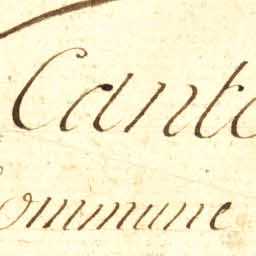 Canto
ommune